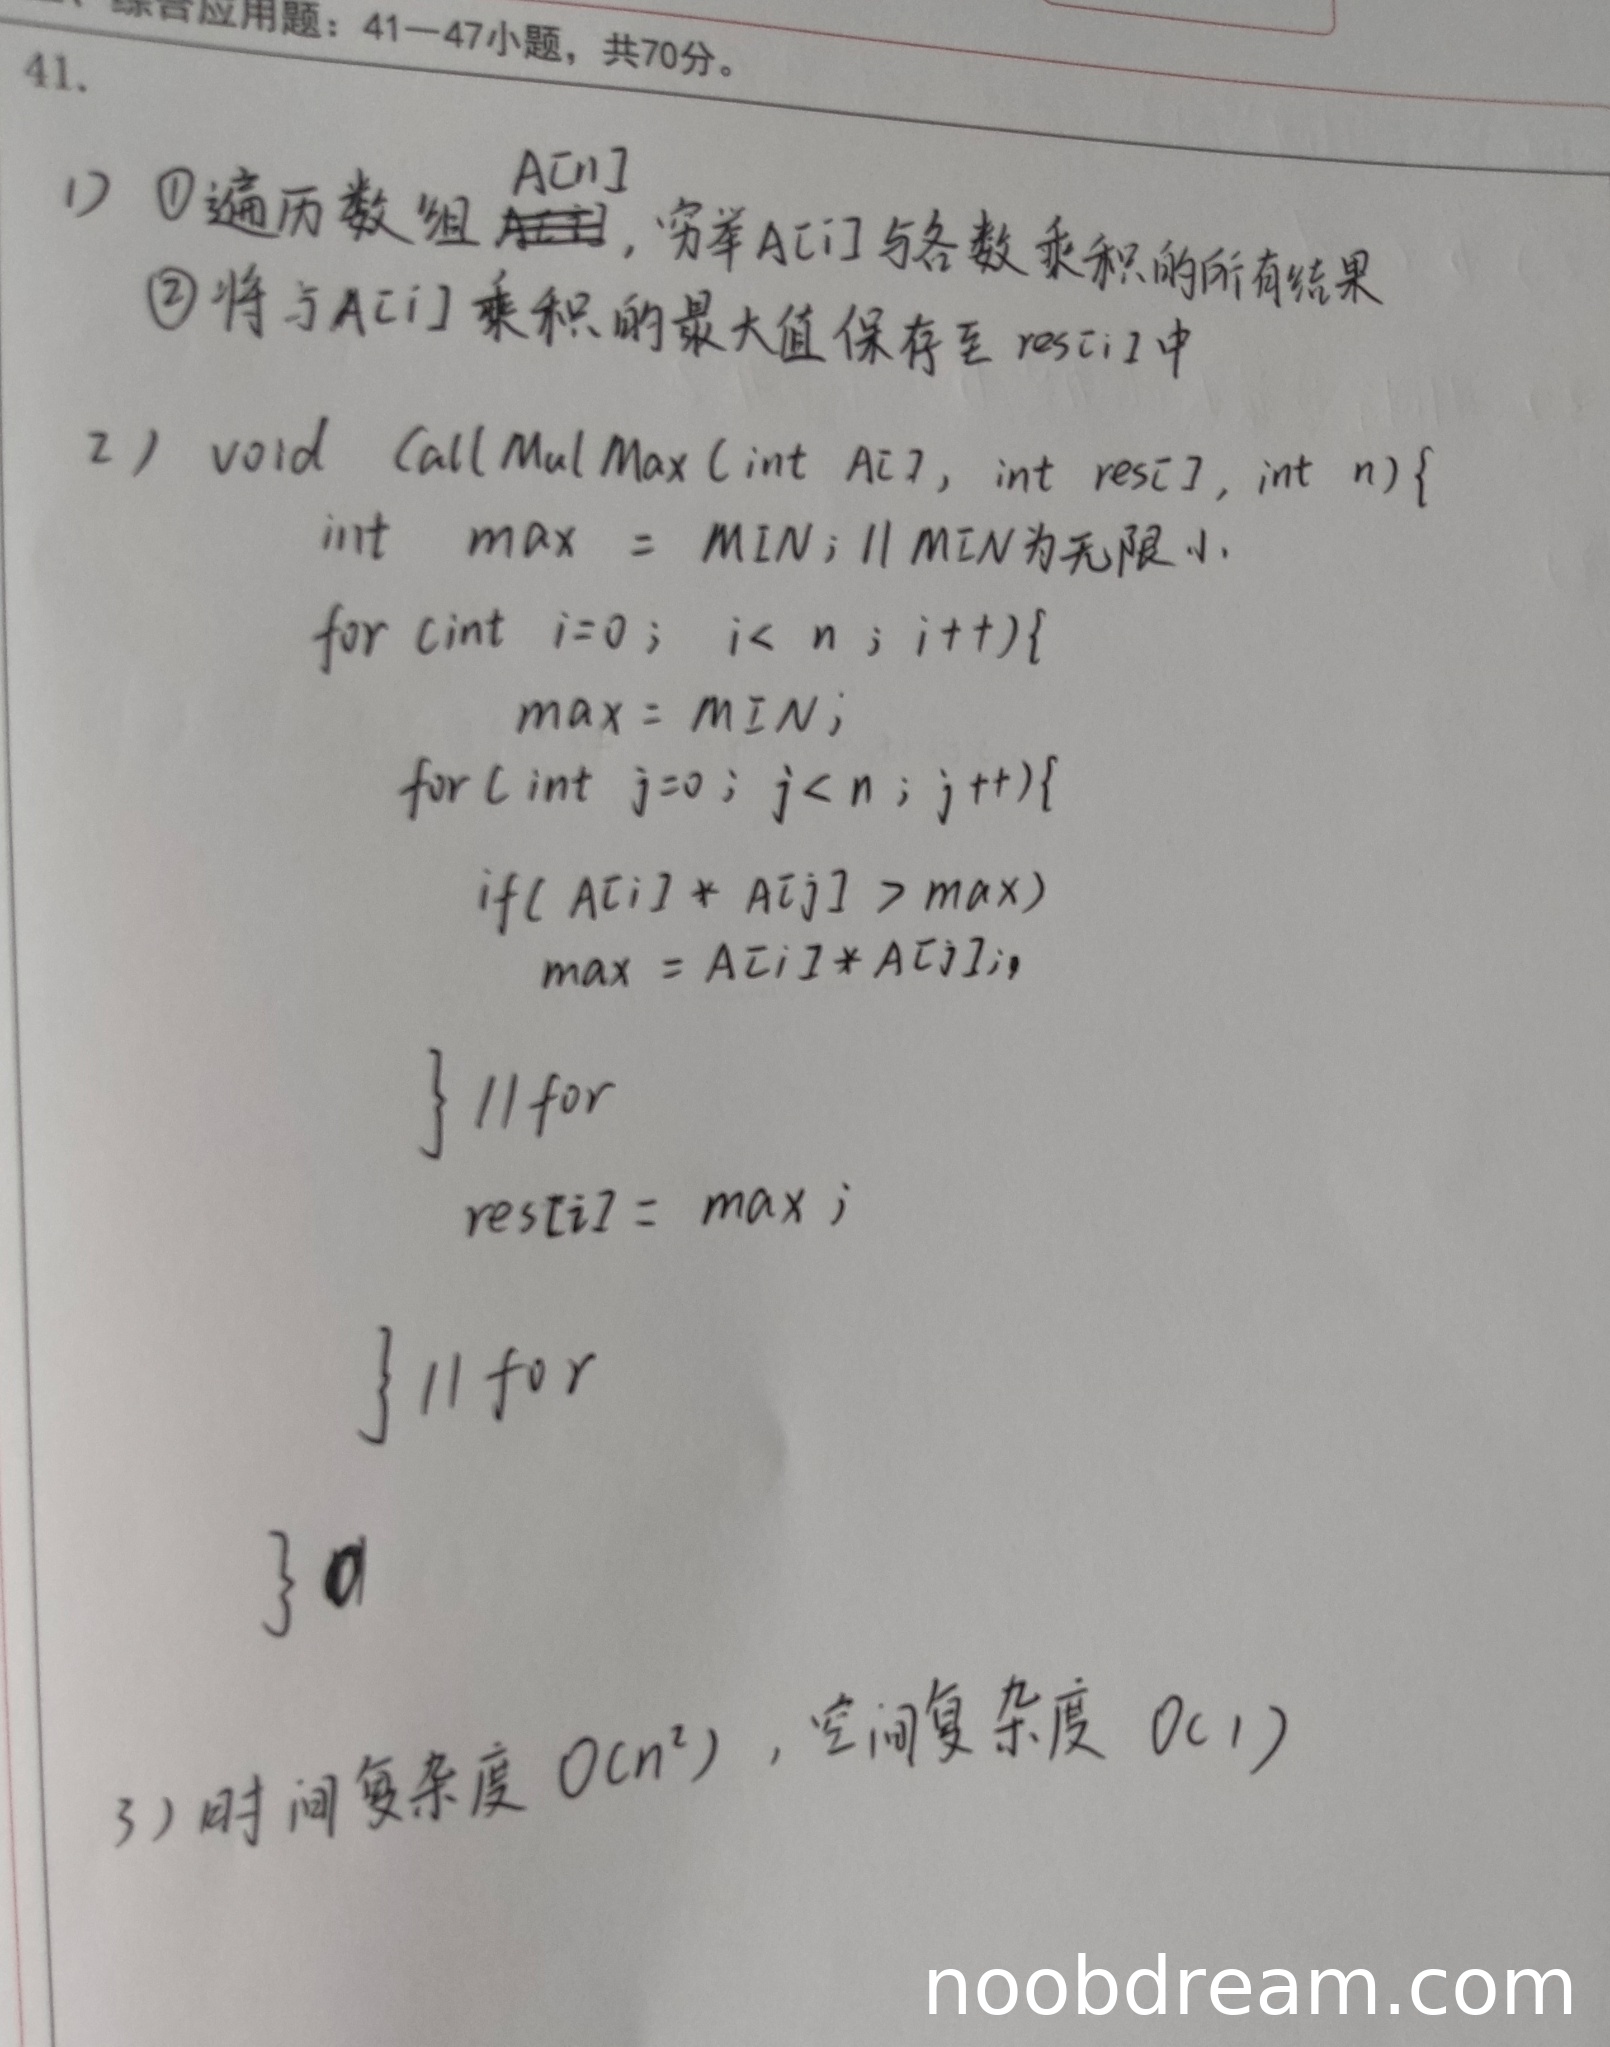 综合应用题：41—47小题，共70分。
41.
1) ①遍历数组 A[n]，穷举A[i]与各数乘积的所有结果
②将与A[i]乘积的最大值保存至 res[i]中
2) void CallMulMax(int A[], int res[], int n){
int max = MIN; //MIN为无限小
for (int i=0; i< n; i++){
max = MIN;
for (int j=0; j<n; j++){
if( A[i] * A[j] > max)
max = A[i]*A[j];
} //for
res[i] = max;
} //for
}
3) 时间复杂度 O(n²)，空间复杂度 O(1)
noobdream.com